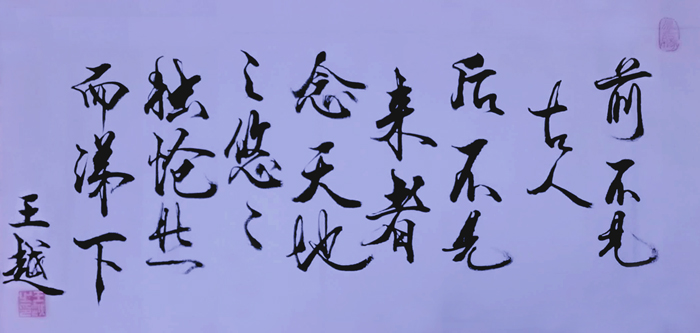 前不见
古人
后不见
来者
念天地
之悠々
独怆然
而涕下
王越